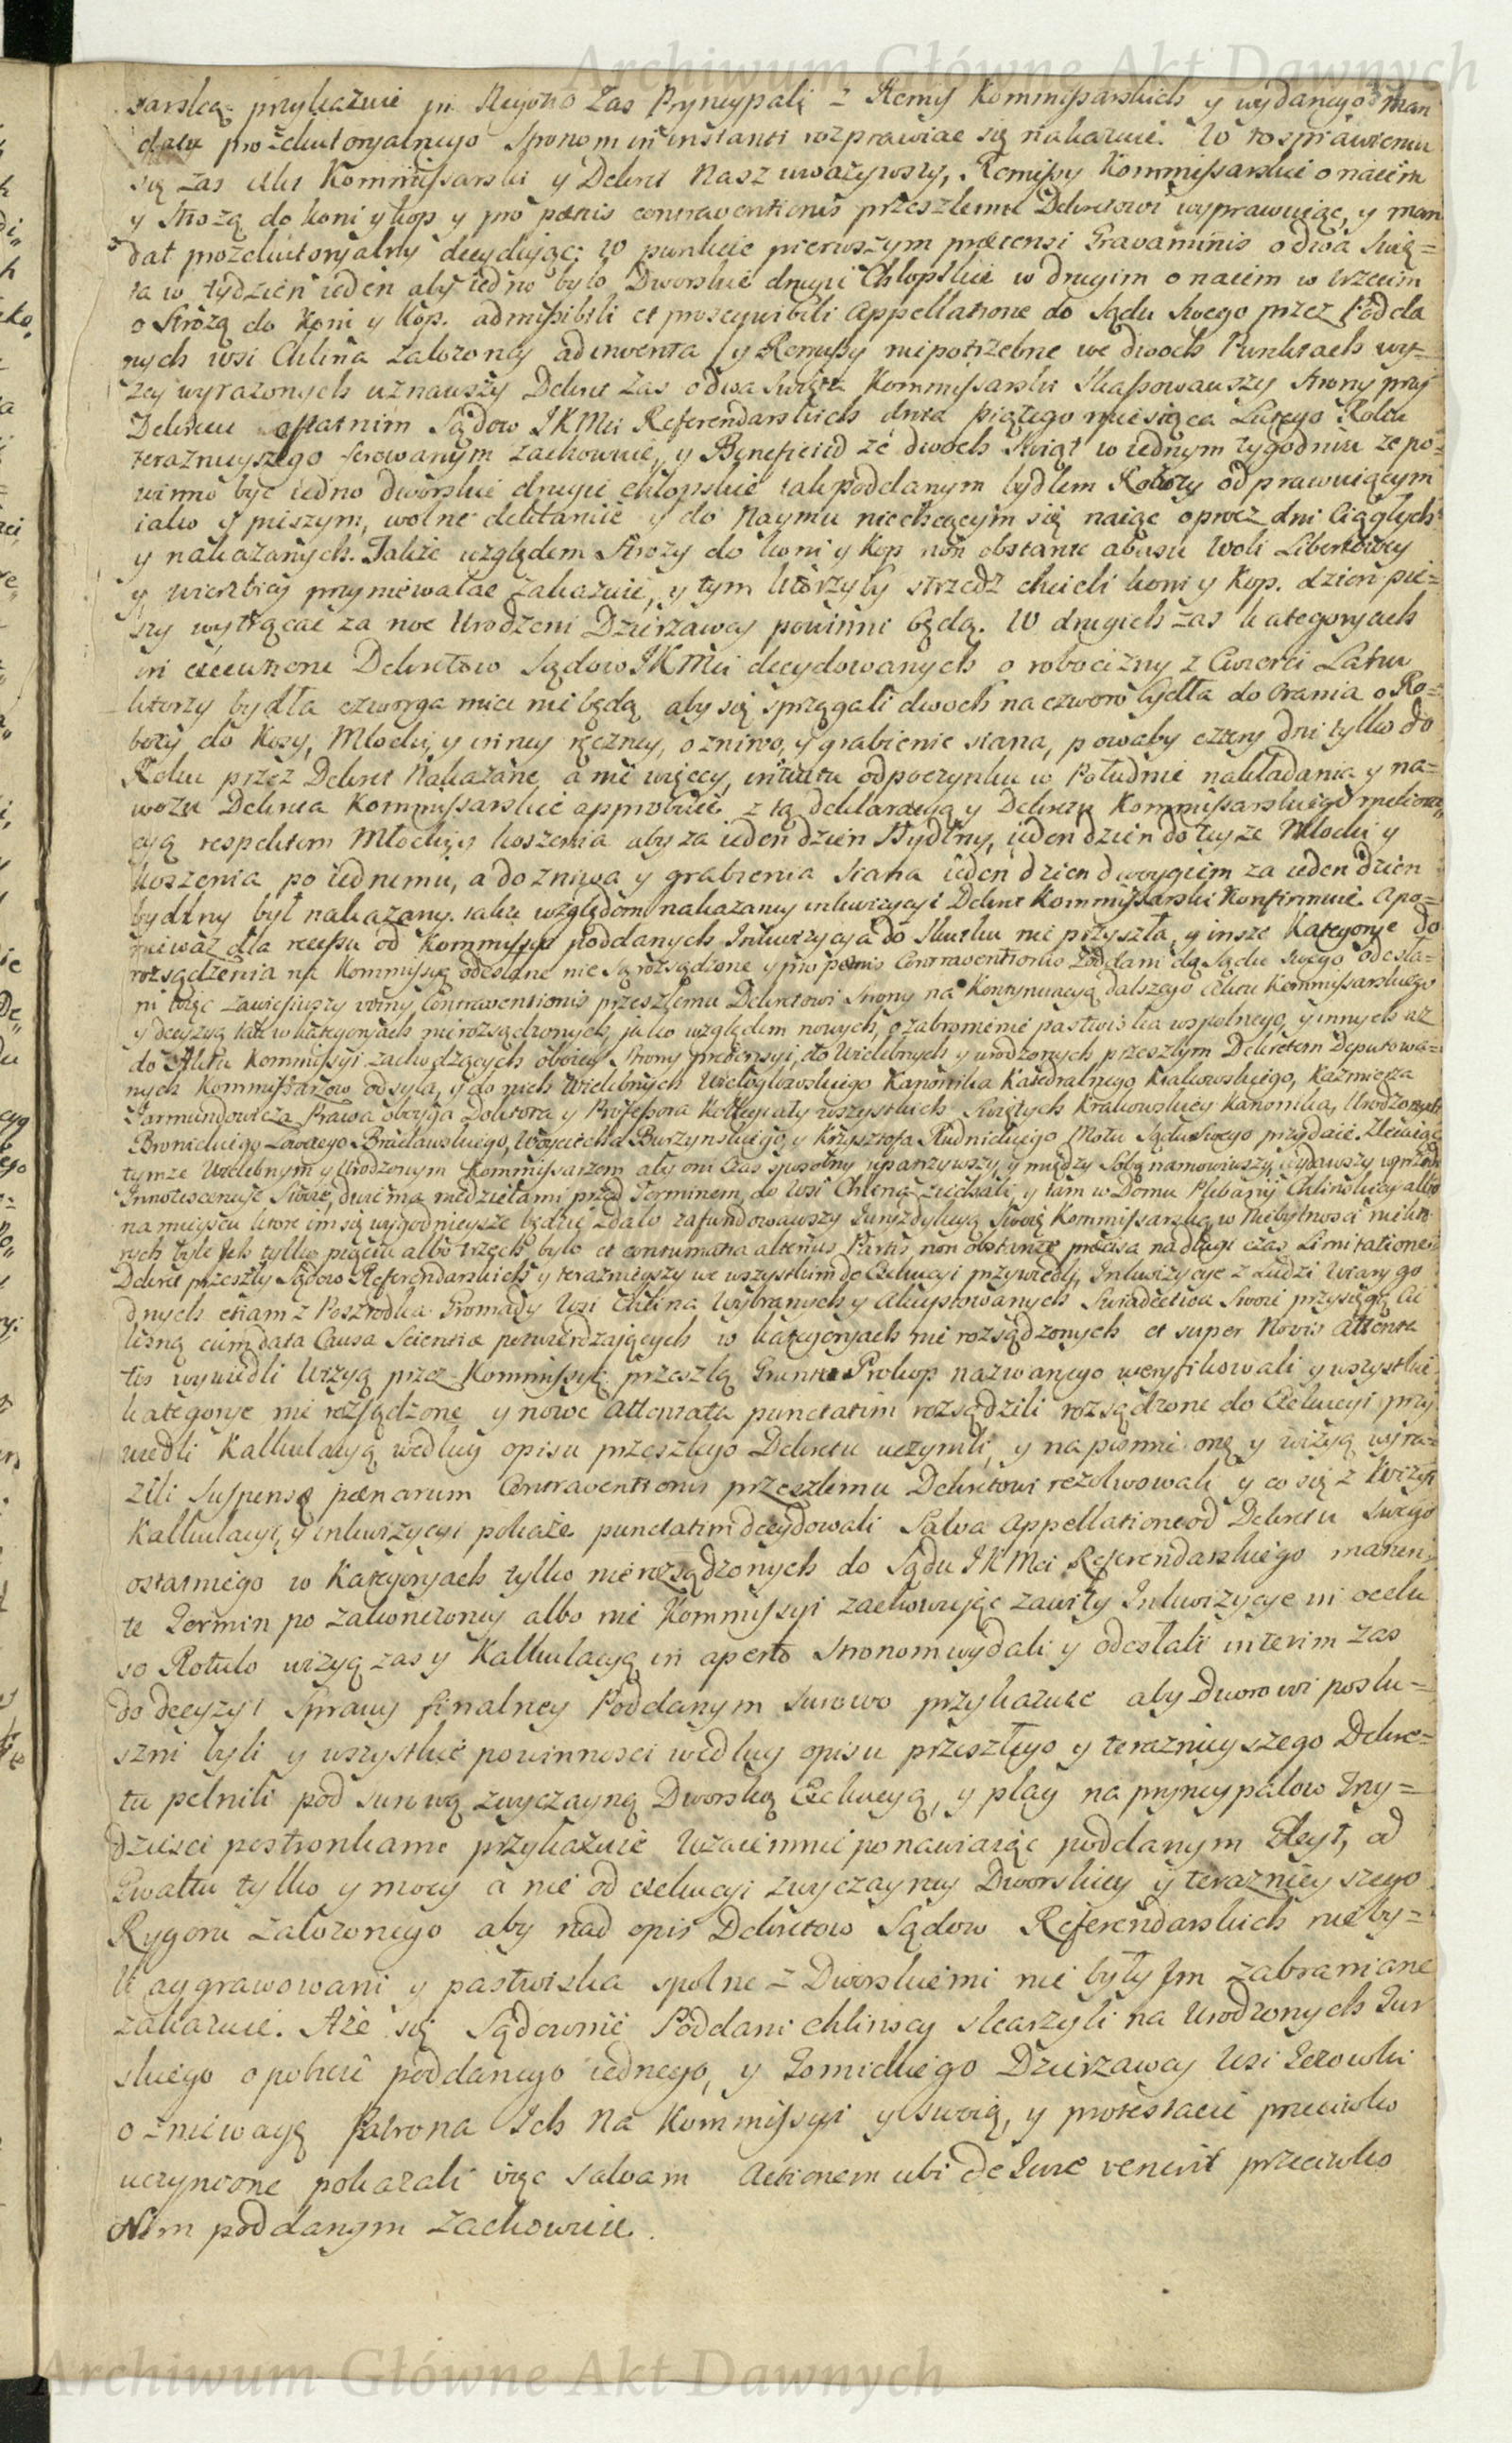 Archiwum Główne Akt Dawnych
sarską przykazuie in Reliquo zas Pryncypali z Remis Kommissarskich y wydanego Man
datu prozekutoryalnego Stronom in instanti rozprawiac się nakazuie. W rosprawieniu
się zas Akt Kommissarski y Dekret Nasz uważywszy, Remissy Kommissarskie o naiem
y Strożą do koni y kop y pro pænis contraventionis przeszlemu Dekretowi wyprawuiąc, y man
dat prozekutoryalny decyduiąc; W punkcie pierwszym prætensi Gravaminis o dwa Swię=
ta w tydzien ieden aby iedno bylo Dworskie drugie Chlopskie w drugim o naiem w trzecim
o Strożą do Koni y Kop. admissibili et prosequibili Appellatione do Sądu swego przez Podda
nych wsi Chlina zalozoney adinventa y Remissy niepotrzebne we dwoch Punktach wy=
zey wyrazonych uznawszy Dekret zas o dwa Swięta Kommissarski Skassowawszy Strony przy
Dekrecie ostatnim Sądow JKMci Referendarskich dnia piątego miesiąca Lutego Roku
teraznieyszego ferowanym zachowuie, y Beneficia ze dwoch Swiąt w iednym tygodniu ze po=
winno byc iedno dworskie drugie chlopskie tak poddanym bydlem Roboty odprawuiącym
iako y pieszym, wolne deklaruie y do Naymu niechcącym się naiąc oprocz dni Ciąglych
y nakazanych. Takze względem Strozy do koni y Kop non obstante abusu Woli Libertowey
y Wierzbicy przyniewalac zakazuie, y tym ktorzyby strzedz chcieli koni y Kop. dzien pie=
szy wytrącac za noc Urodzeni Dzierzawcy powinni będą. W drugich zas kategoryach
in executione Dekretow Sądow JKMci decydowanych o robocizny z Cwierci Latu
ktorzy bydła czworga miec nie będą aby się sprzągali dwoch na czworo bydła do orania o Ro=
boty do Kosy, Mlocki, y inney ręczney, o zniwo, y grabienie siana, powaby cztery dni tylko do
Roku przez Dekret Nakazane a nie więcey, intuitu odpoczynku w Południe nakładania y na=
wozu Dekreta Kommissarskie approbuie z tą deklaracyą y Dekretu Kommissarskiego meliora
cyą respektem Mlocki y koszenia aby za ieden dzien Bydlny, ieden dzien do teyze Mlocki y
koszenia po iednemu, a do zniwa y grabienia Siana ieden dzien dwoygiem za ieden dzien
bydlny był nakazany. takze względem nakazaney inkwizycyi Dekret Kommissarski Konfirmuie. A po=
niewaz dla recessu od Kommissyi poddanych Inkwizycya do Skutku nie przyszła, y insze Kategorye do
rozsądzenia na Kommissyą odeslane nie są rozsądzone y pro pænis Contraventionis Poddani do Sądu swego odesla=
ni więc zawiesiwszy winy Contraventionis przeszlemu Dekretowi Strony na Kontynuacyą dalszego Aktu Kommissarskiego
y decyzyą tak w kategoryach nierozsądzonych, jako względem nowych, o zabronienie pastwiska wspolnego, y innych az
do Aktu Kommissyi zachodzących oboiey Strony pretensyi, do Wielebnych y urodzonych przeszlym Dekretem Deputowa=
nych Kommissarzow odsyla, y do nich Wielebnych Wielogłowskiego Kanonika Katedralnego Krakowskiego, Kazmierza
Jarmundowicza Prawa oboyga Doktora y Professora Kollegiaty wszystkich Swiętych Krakowskiey Kanonika, Urodzonych
Bronickiego Lowczego Bracławskiego, Woyciecha Burzynskiego, y Krzysztofa Rudnickiego Motu Sądu Swego przydaie. Zlecaiąc
tymze Wielebnym y Urodzonym Kommissarzom aby oni Czas sposobny upatrzywszy, y między Sobą namowiwszy, wydawszy wprzod
Innotescencye Swoie, dwiema niedzielami przed Terminem, do Wsi Chlina ziechali, y tam w Domu Plebanij Chlinskiey albo
na mieyscu ktore im się wygodnieysze będzie zdało zafundowawszy Juryzdykcyą Swoię Kommissarską, w Niebytnosci niekto
rych byle Ich tylko pięciu albo trzech bylo et contumatia alterius Partis non obstante præcisa na długi czas Limitatione.
Dekret przeszly Sądow Referendarskich y teraznieyszy we wszystkim do Exekucyi przywiedli, Inkwizycye z Ludzi Wiary go
dnych etiam z Poszrodka Gromady Wsi Chlina Wybranych y Akceptowanych Swiadectwa Swoie przysięgą Cie
lesną cum data Causa Scientiæ potwierdzaiących w kategoryach nie rozsądzonych et super Novis attenta
tis wywiedli Wizyą przez Kommissyą przeszłą Gruntu Prokop nazwanego weryfikowali y wszystkie
kategorye nie rozsądzone y nowe attentata punctatim rozsądzili rozsądzone do Exekucyi przy
wiedli Kalkulacyą według opisu przeszlego Dekretu uczynili, y na pismie onę y wizyą wyra=
zili Suspensę pænarum Contraventionis przeszlemu Dekretowi rezolwowali y co się z Wizyi
Kalkulacyi, y inkwizycyi pokaże punctatim decydowali Salva Appellatione od Dekretu Swego
ostatniego w Kategoryach tylko nierozsądzonych do Sądu JKMci Referendarskiego manen
te Termin po zakonczoney albo nie Kommissyi zachowuiąc zawity Inkwizycye in oculu
so Rotulo wizyą zas y Kalkulacyą in aperto Stronom wydali y odeslali interim zas
do decyzyi Sprawy finalney Poddanym surowo przykazuie aby Dworowi poslu=
szni byli y wszystkie powinnosci według opisu przeszłego y teraznieyszego Dekre=
tu pelnili pod surową zwyczayną Dworską Exekucyą, y plag na pryncypałow Trzy=
dziesci postronkami przykazuie Wzaiemnie ponawiaiąc poddanym Gleyt, od
Gwałtu tylko y mocy a nie od exekucyi zwyczayney Dworskiey y teraznieyszego
Rygoru zalozonego aby nad opis Dekretow Sądow Referendarskich nie by=
li aggrawowani y pastwiska spolne z Dworskiemi nie były Im zabraniane
zakazuie. Aże się Sądownie Poddani Chlinscy skarzyli na Urodzonych Tur
skiego o pobicie poddanego iednego, y Łomickiego Dzierzawcy Wsi Jezowki
o zniewagę Patrona Ich Na Kommissyi y Swoią, y protestacie przeciwko
uczynione pokazali więc salvam Actionem ubi de Jure venerit przeciwko
Nim poddanym zachowuie.
Archiwum Główne Akt Dawnych